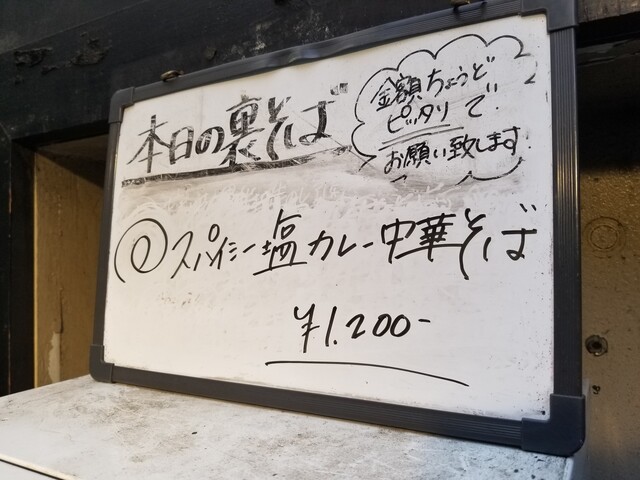 本日の裏そば
金額ちょうど
ピッタリで
お願い致します!
スパイシー塩カレー中華そば
¥1.200-